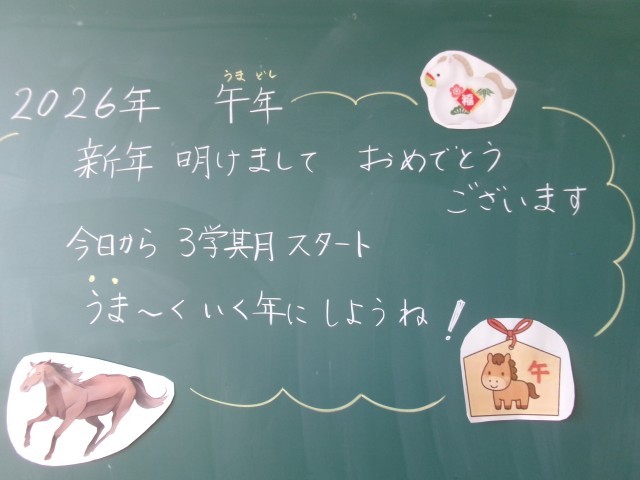 2026年 午年
うまどし
新年 明けまして おめでとう
ございます
今日から 3学期スタート
うま〜くいく年にしようね!
福
午